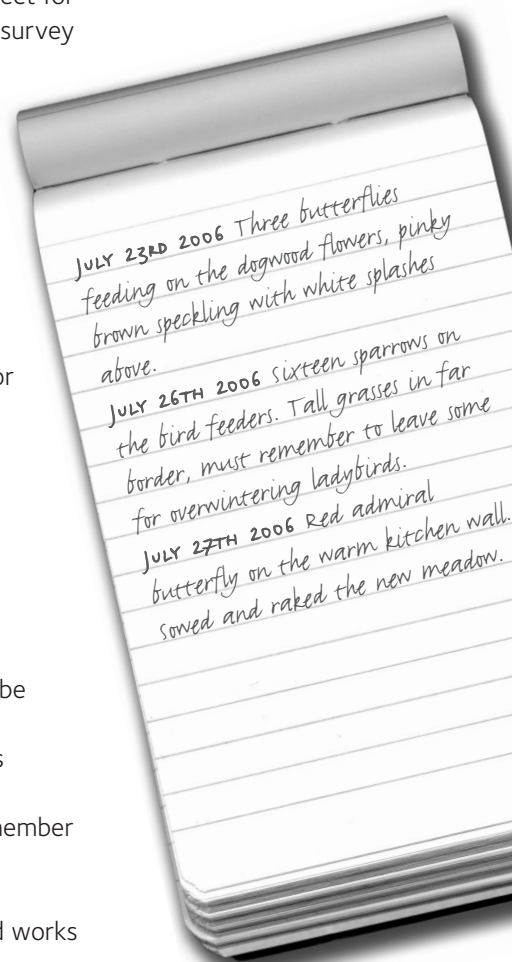 eet for
survey
or
be
s
ember
d works
JULY 23RD 2006 Three butterflies
feeding on the dogwood flowers, pinky
brown speckling with white splashes
above.
JULY 26TH 2006 Sixteen sparrows on
the bird feeders. Tall grasses in far
border, must remember to leave some
for overwintering ladybirds.
JULY 27TH 2006 Red admiral
butterfly on the warm kitchen wall.
Sowed and raked the new meadow.